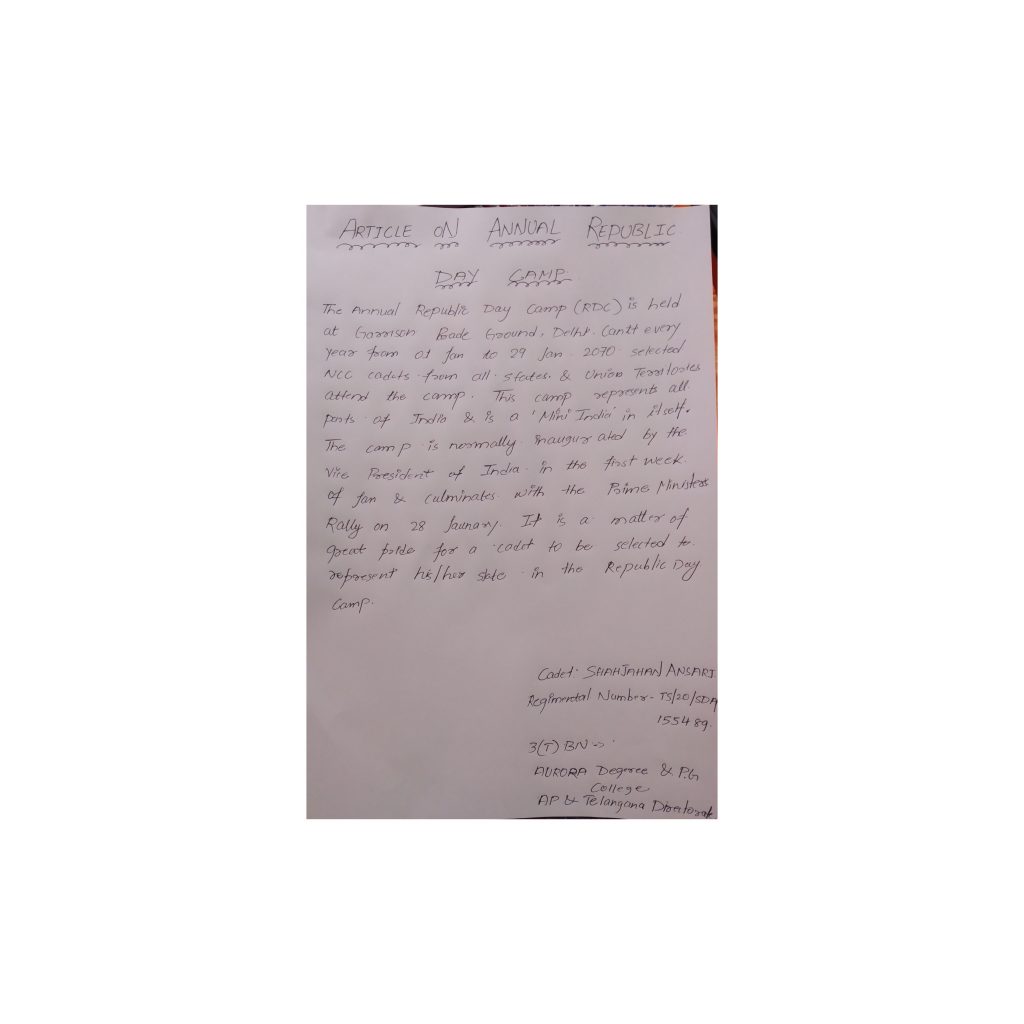 ARTICLE ON ANNUAL REPUBLIC
DAY CAMP.
The Annual Republic Day Camp (RDC) is held
at Garrison Ground, Delhi. Cantt every
year from 01 Jan to 29 Jan. 2070 selected
NCC cadets from all states. & Union Territories
attend the camp. This camp represents all
parts of India & is a 'Mini India' in itself.
The camp is normally inaugurated by the
Vice President of India in the first week
of Jan & culminates with the Prime Ministers
Rally on 28 It is a matter of
great pride for a cadet to be selected to
represent his/her in the Republic Day
Camp.
Cadet: SHAHJAHAN ANSARI
Regimental Number - TS/20/SDA
155489.
3(T) BN
AURORA Degree & P.G
College
AP & Telangana